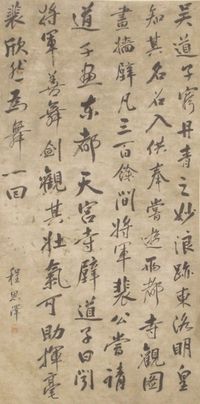 吳道子窮丹青之妙浪跡東洛明皇
知其名召入供奉嘗遊兩都寺觀圖
畫墻壁凡三百餘間將軍裴公嘗請
道子畫東都天宮寺壁道子曰聞
將軍善舞劍觀其壯氣可助揮毫
裴欣然為舞一回
程恩澤